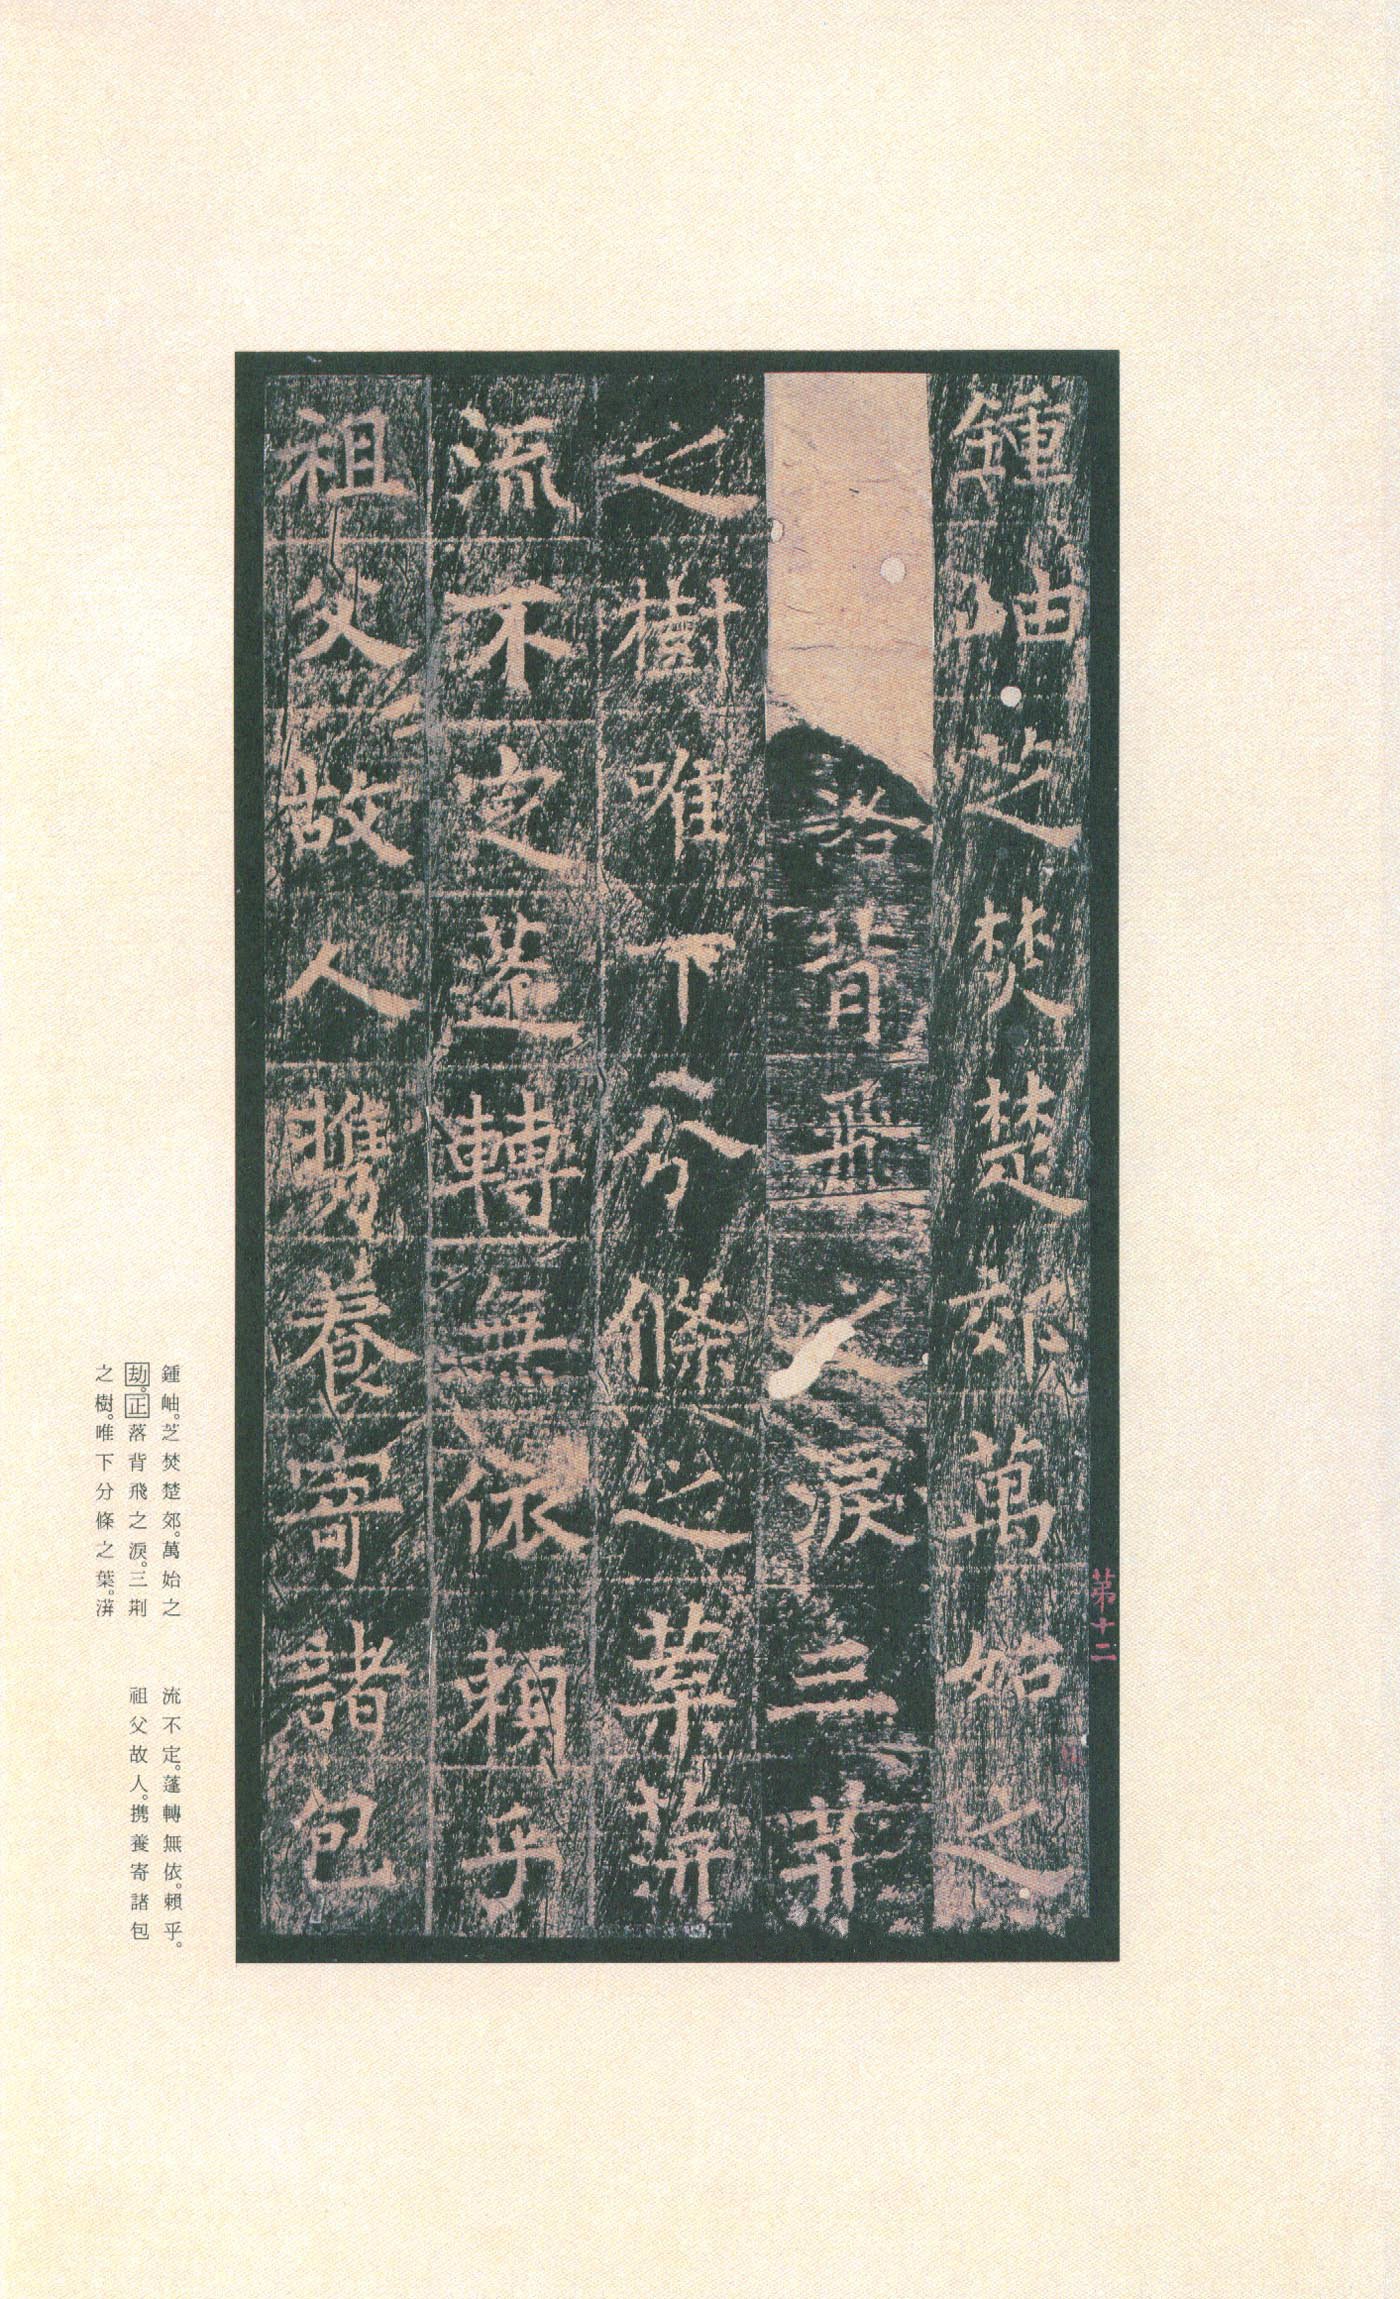 鍾岫芝焚楚郊萬始之
落背飛之淚三荊
之樹唯下分條之葉蓱
流不定蓬轉無依賴乎
祖父故人攜養寄諸包
第十二
鍾岫。芝焚楚郊。萬始之
劫。正落背飛之淚。三荊
之樹。唯下分條之葉。蓱
流不定。蓬轉無依。賴乎。
祖父故人。携養寄諸包